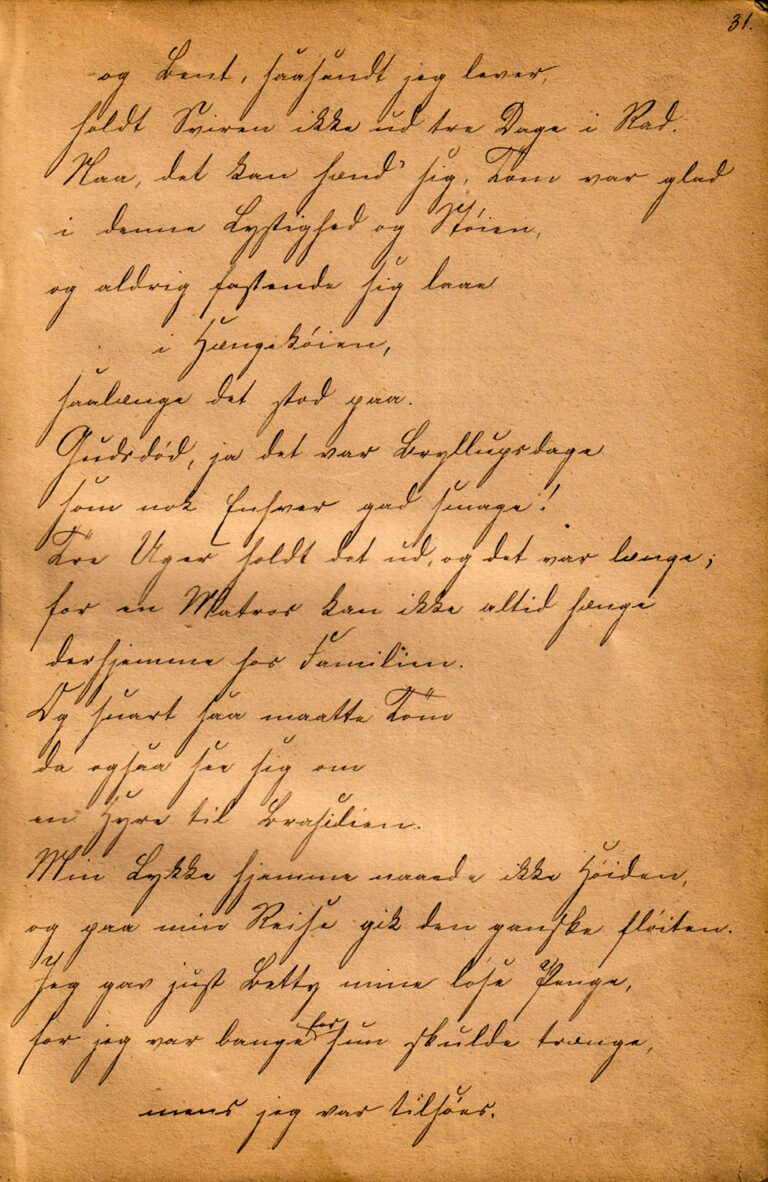 31.
og Bent, saasandt jeg lever,
holdt Sviren ikke ud tre Dage i Rad.
Naa, det kan hænd' sig, Töm var glad
i denne Lystighed og Støien,
og aldrig fastende sig laae
i Hængekøien,
saalænge det stod paa.
Gudsdød, ja det var Bryllupsdage
som nok Enhver gad smage!
Tre Uger holdt det ud, og det var længe;
for en Matros kan ikke altid hænge
derhjemme hos Familien.
Og snart saa maatte Töm
da ogsaa see sig om
en Hyre til Brasilien.
Min Lykke hjemme naaede ikke Høiden,
og paa min Reise gik den ganske fløiten.
Jeg gav just Betty mine løse Penge,
for jeg var bange for hun skulde trænge,
mens jeg var tilsøes.